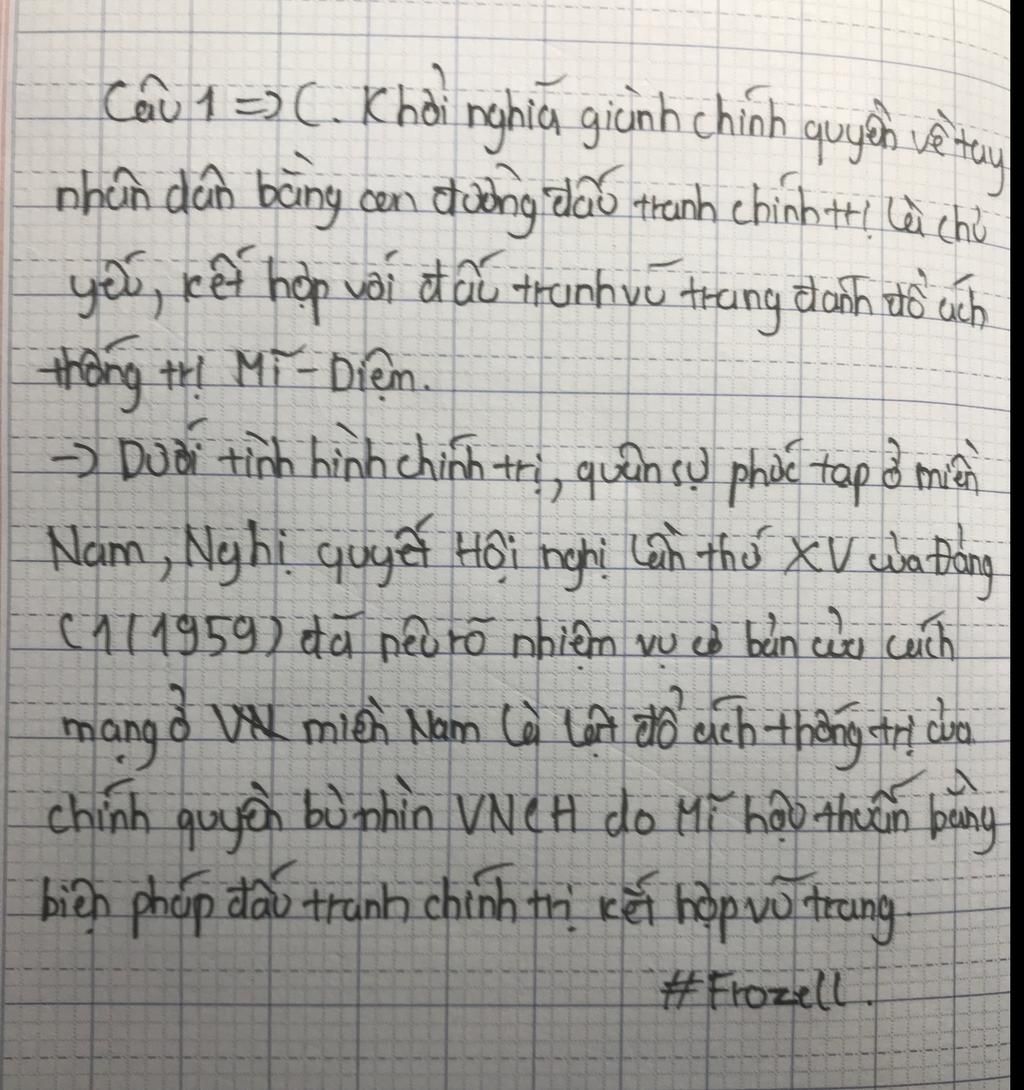 Câu 1 => C. Khởi nghĩa giành chính quyền về tay
nhân dân bằng con đường đấu tranh chính trị là chủ
yếu, kết hợp với đấu tranh vũ trang đánh đổ ách
thống trị Mĩ - Diệm.
-> Dưới tình hình chính trị, quân sự phức tạp ở miền
Nam, Nghị quyết Hội nghị lần thứ XV của Đảng
(1/1959) đã nêu rõ nhiệm vụ cơ bản của cách
mạng ở VN miền Nam là lật đổ ách thống trị của
chính quyền bù nhìn VNCH do Mĩ hậu thuẫn bằng
biện pháp đấu tranh chính trị kết hợp vũ trang.
#Frozell.